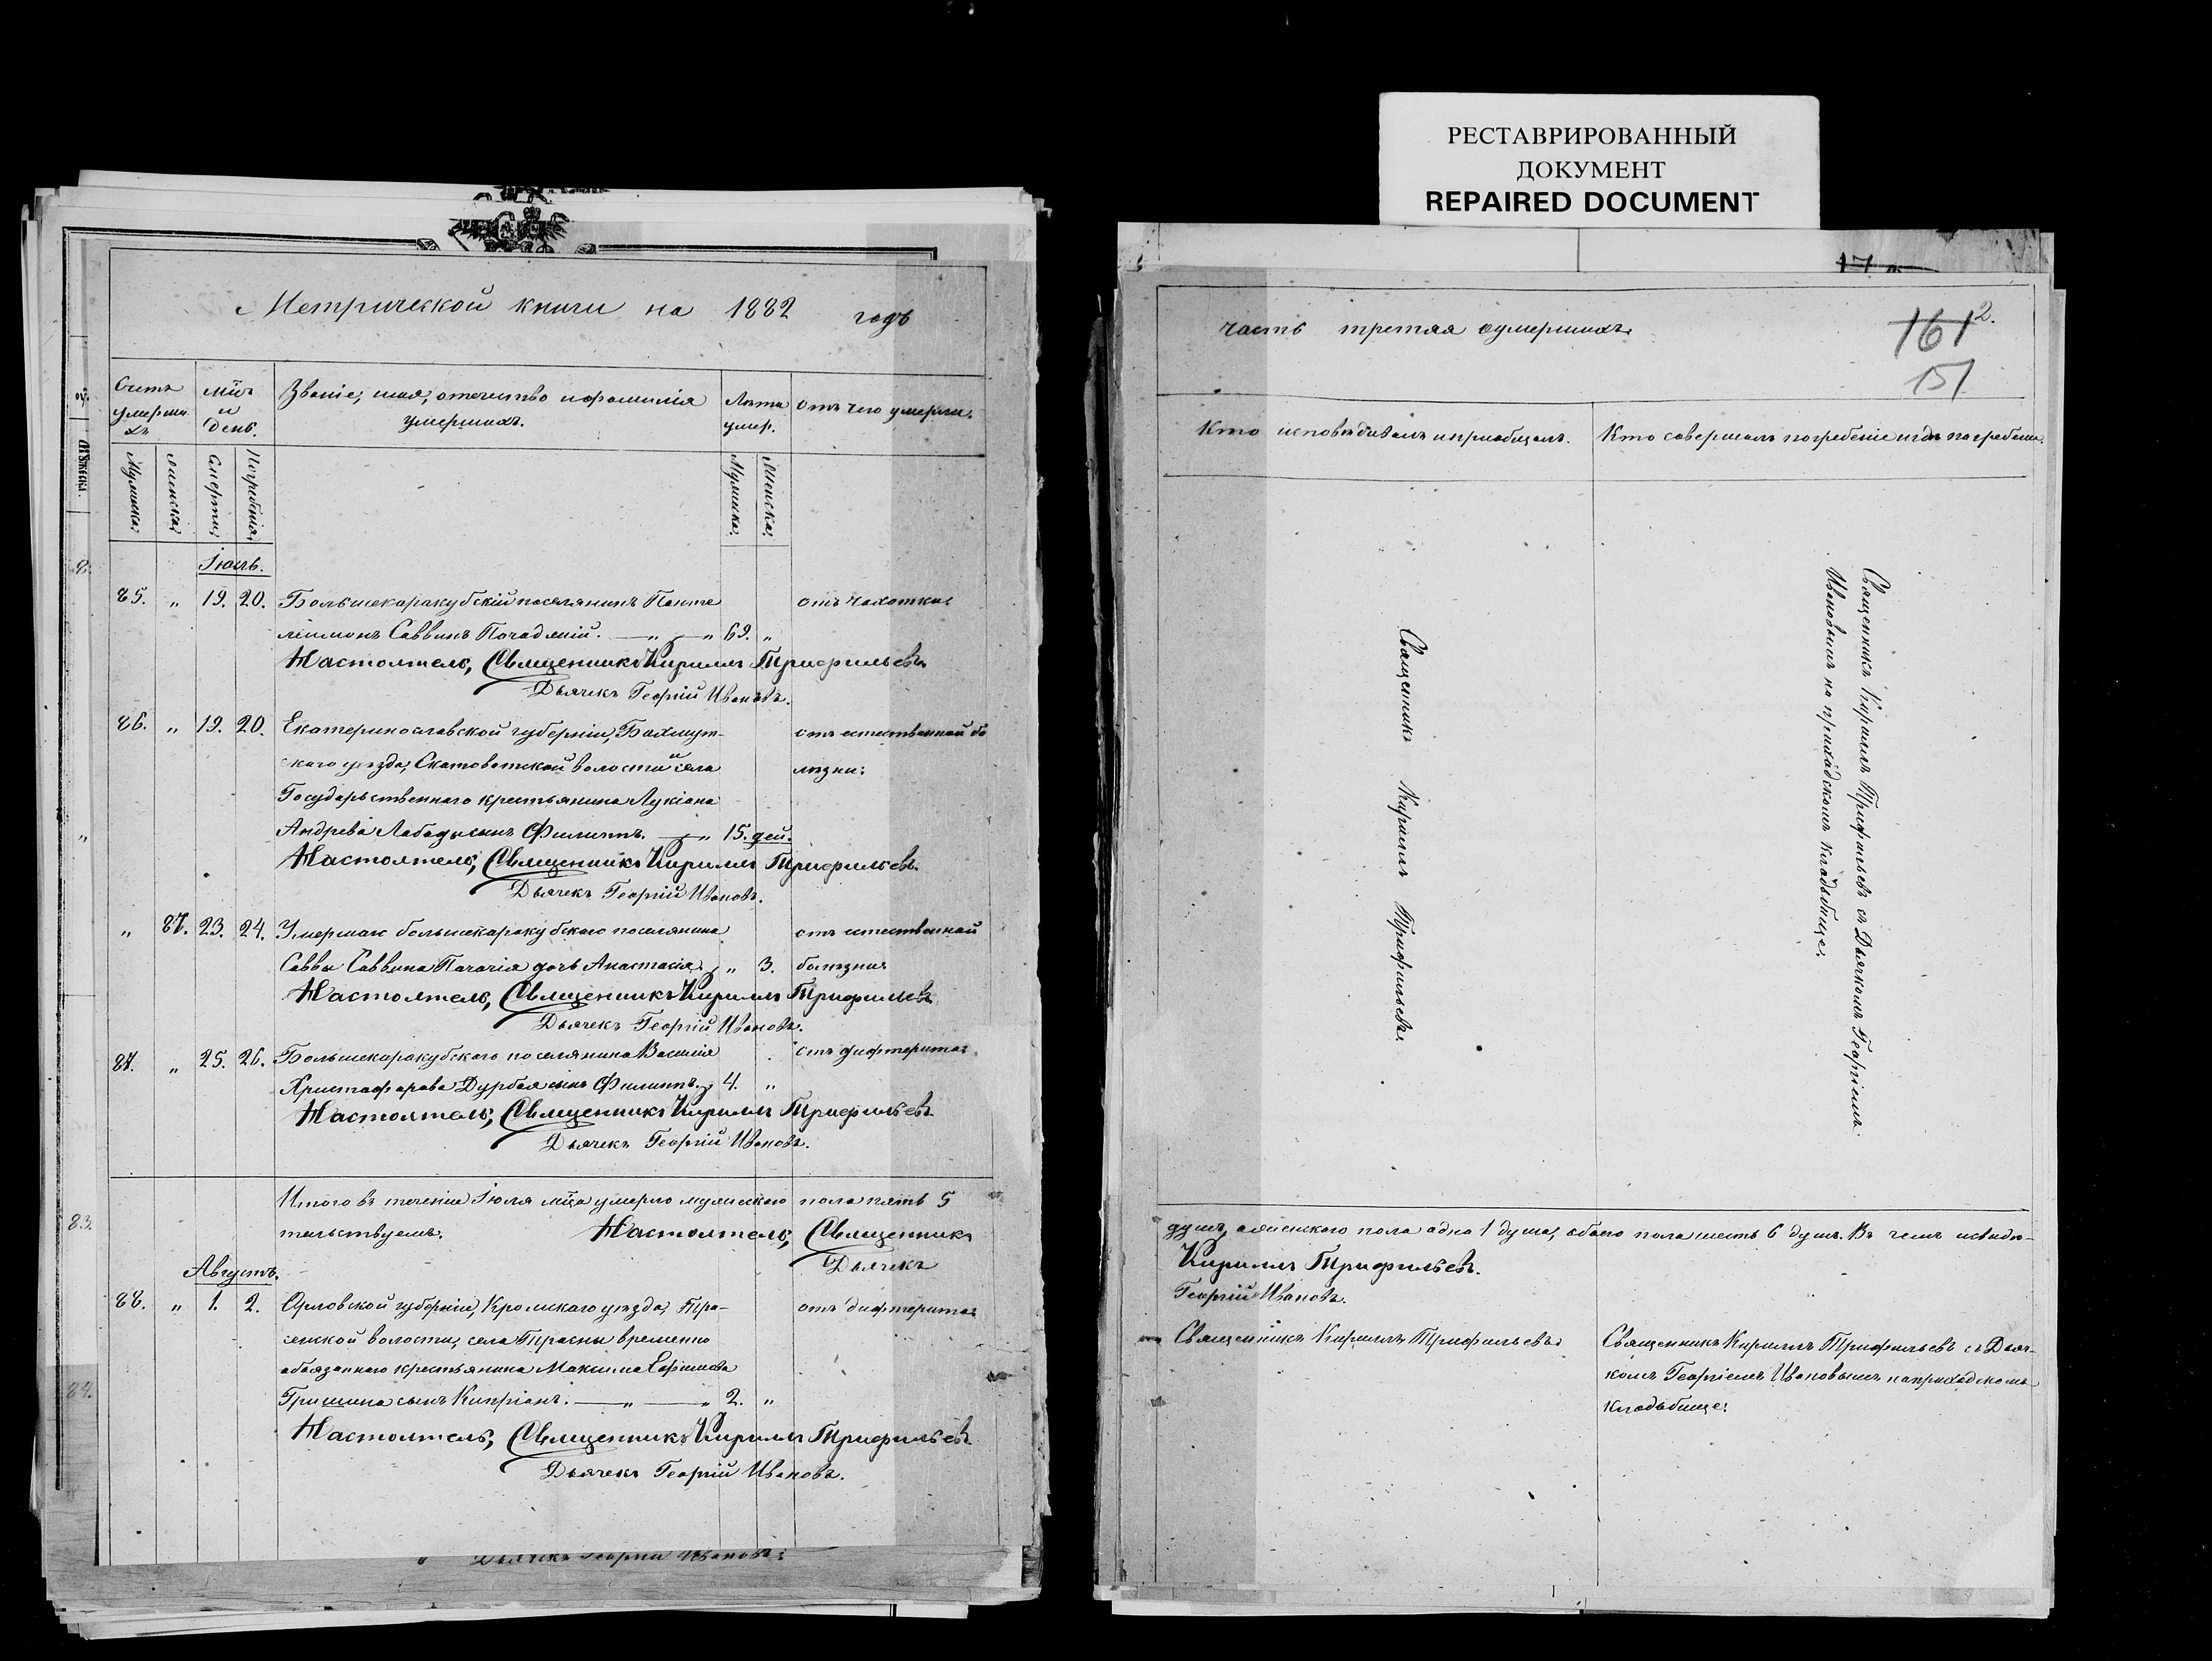 РЕСТАВРИРОВАННЫЙ
ДОКУМЕНТ
REPAIRED DOCUMENT
Метрической книги на 1882 годъ
Счетъ умершихъ
мѣц. и день.
Званіе, имя, отечество и фамилія умершихъ.
Лѣта умер.
Отъ чего умерли.
Мужска:
женска:
Смерти:
Погребенія:
Мужска:
Женска:
Іюль.
85. „ 19. 20. Большекаракубскій поселянинъ Панте
отъ чахотки:
леимонъ Саввинъ — „ — „ 69. „
Настоятель, Священникъ Кириллъ Трифильевъ.
Дьячекъ Георгій Ивановъ.
86. „ 19. 20. Екатеринославской губерніи, Бахмут-
отъ естественной бо
скаго уѣзда, волости и села
лѣзни:
Государственнаго крестьянина Лукіана
Андреева сынъ Филиппъ. — „ 15. дей.
Настоятель, Священникъ Кириллъ Трифильевъ.
Дьячекъ Георгій Ивановъ.
„ 87. 23. 24. Умершаго большекаракубскаго поселянина
отъ естественной
Саввы Саввина дочь Анастасія. „ 3.
болѣзни:
Настоятель, Священникъ Кириллъ Трифильевъ
Дьячекъ Георгій Ивановъ.
87. „ 25. 26. Большекаракубскаго поселянина Василія
отъ дифтерита:
Христофорова Дурбая сынъ Филиппъ. 4. „
Настоятель, Священникъ Кириллъ Трифильевъ.
Дьячекъ Георгій Ивановъ.
Итого въ теченіи Іюля мѣца умерло мужескаго пола пять 5
тельствуемъ. Настоятель, Священникъ
Дьячекъ
Августъ.
88. „ 1. 2. Орловской губерніи, Кромскаго уѣзда, Тра-
отъ дифтерита:
сенской волости, села Трасны временно
обязаннаго крестьянина Максима Ефимова
Гришина сынъ Кипріанъ. — „ — „ 2. „
Настоятель, Священникъ Кириллъ Трифильевъ
Дьячекъ Георгій Ивановъ.
Дьячекъ Георгій Ивановъ:
83.
84.
часть третяя оумершихъ.
161 2.
151
Кто исповѣдывалъ и пріобщалъ.
Кто совершалъ погребеніе и гдѣ погребены.
Священникъ Кириллъ Трифильевъ.
Священникъ Кириллъ Трифильевъ съ Дьячкомъ Георгіемъ
Ивановымъ на приходскомъ кладбище.
душъ, женскаго пола одна 1 душа, обоего пола шесть 6 душъ. Въ чемъ и свидѣ-
Кириллъ Трифильевъ.
Георгій Ивановъ.
Священникъ Кириллъ Трифильевъ:
Священникъ Кириллъ Трифильевъ съ Дьяч-
комъ Георгіемъ Ивановымъ на приходскомъ
кладбище: